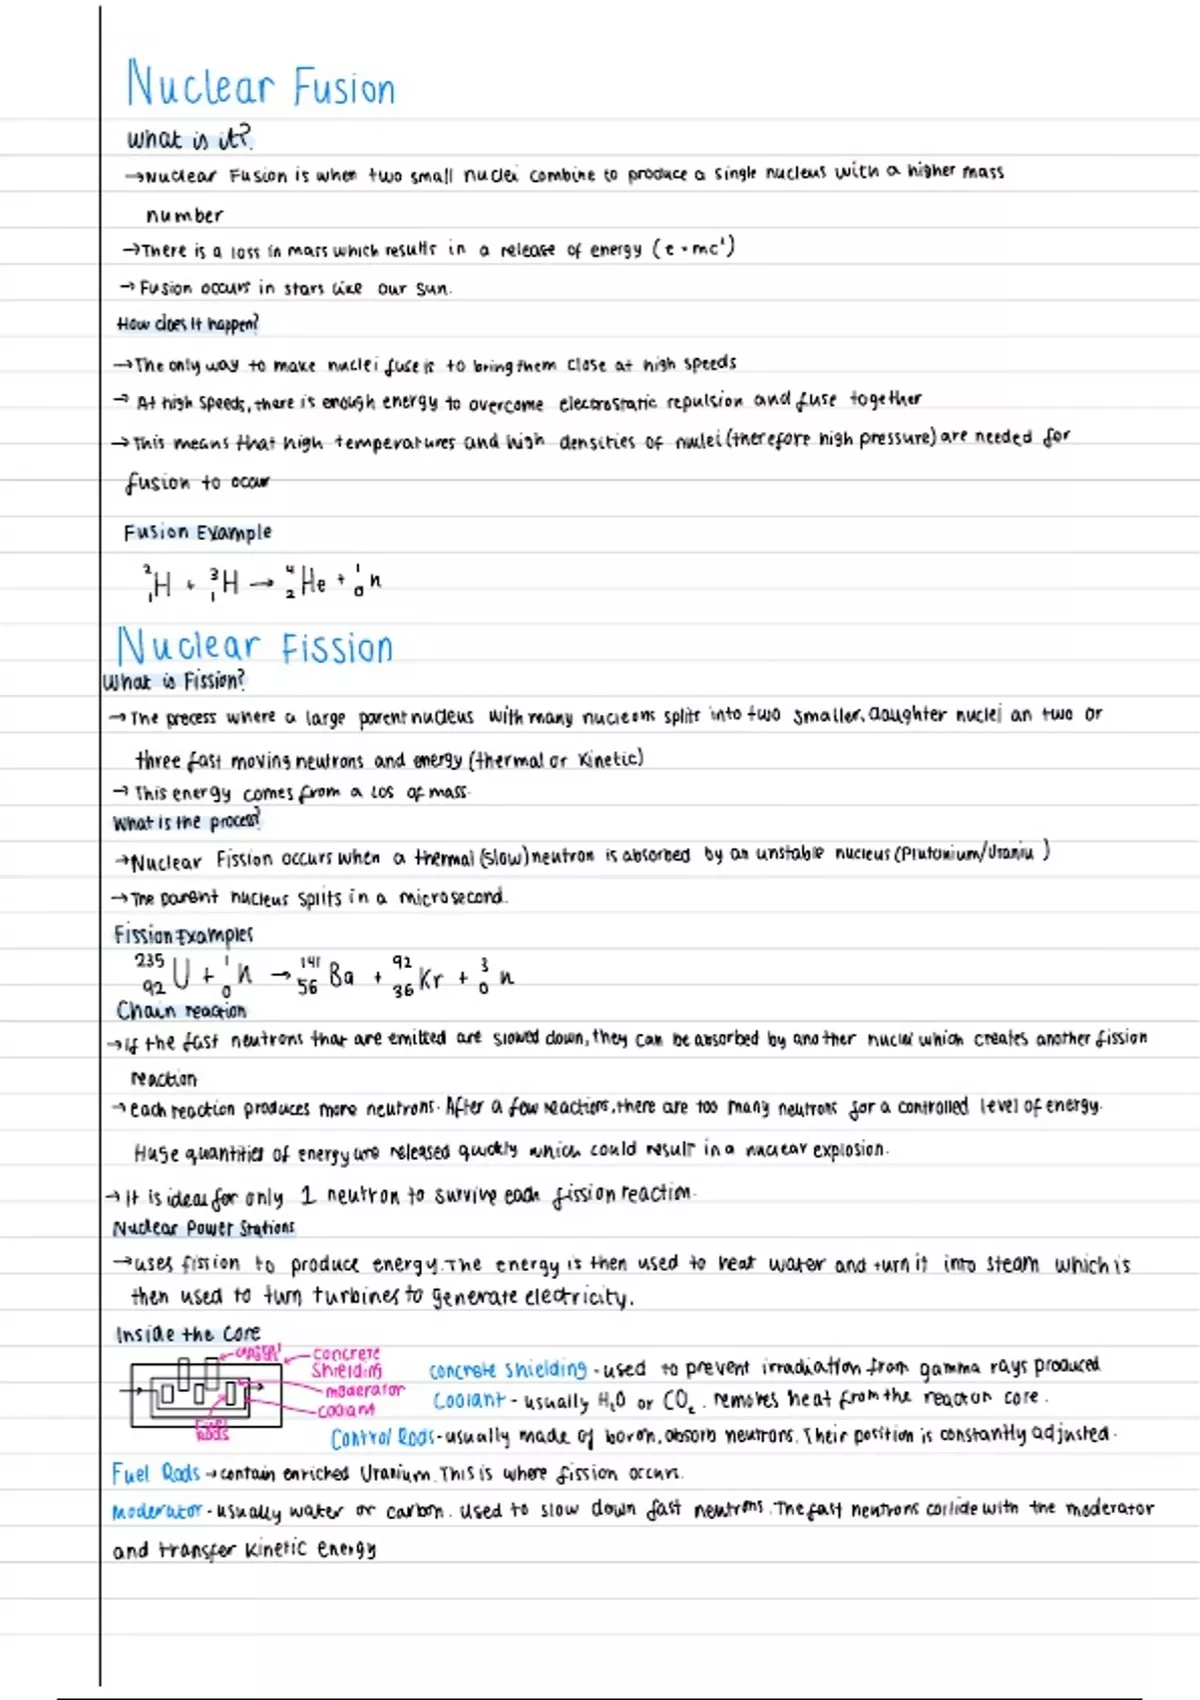 Nuclear Fusion
What is it?
→Nuclear Fusion is when two small nuclei combine to produce a single nucleus with a higher mass
number
→There is a loss in mass which results in a release of energy (e=mc²)
→ Fusion occurs in stars like our sun.
How does it happen?
→The only way to make nuclei fuse is to bring them close at high speeds
→ At high speeds, there is enough energy to overcome electrostatic repulsion and fuse together
→This means that high temperatures and high densities of nuclei (therefore high pressure) are needed for
fusion to occur
Fusion Example
²₁H + ³₁H → ⁴₂He + ¹₀n
Nuclear Fission
What is Fission?
→The process where a large parent nucleus with many nucleons splits into two smaller, daughter nuclei an two or
three fast moving neutrons and energy (thermal or kinetic)
→ This energy comes from a los of mass.
What is the process?
→Nuclear Fission occurs when a thermal (slow) neutron is absorbed by an unstable nucleus (Plutonium/Uraniu )
→The parent nucleus splits in a microsecond.
Fission Examples
²³⁵₉₂U + ¹₀n → ¹⁴¹₅₆Ba + ⁹²₃₆Kr + ³₀n
Chain reaction
→If the fast neutrons that are emitted are slowed down, they can be absorbed by another nuclei which creates another fission
reaction
→Each reaction produces more neutrons. After a few reactions, there are too many neutrons for a controlled level of energy.
Huge quantities of energy are released quickly which could result in a nuclear explosion.
→It is ideal for only 1 neutron to survive each fission reaction.
Nuclear Power Stations
→uses fission to produce energy. The energy is then used to heat water and turn it into steam which is
then used to turn turbines to generate electricity.
Inside the Core
concrete
shielding
moderator
coolant
Fuel
Rods
concrete shielding - used to prevent irradiation from gamma rays produced
Coolant - usually H₂O or CO₂. removes heat from the reactor core.
Control Rods - usually made of boron, absorb neutrons. Their position is constantly adjusted.
Fuel Rods → contain enriched Uranium. This is where fission occurs.
Moderator - usually water or carbon. Used to slow down fast neutrons. The fast neutrons collide with the moderator
and transfer kinetic energy